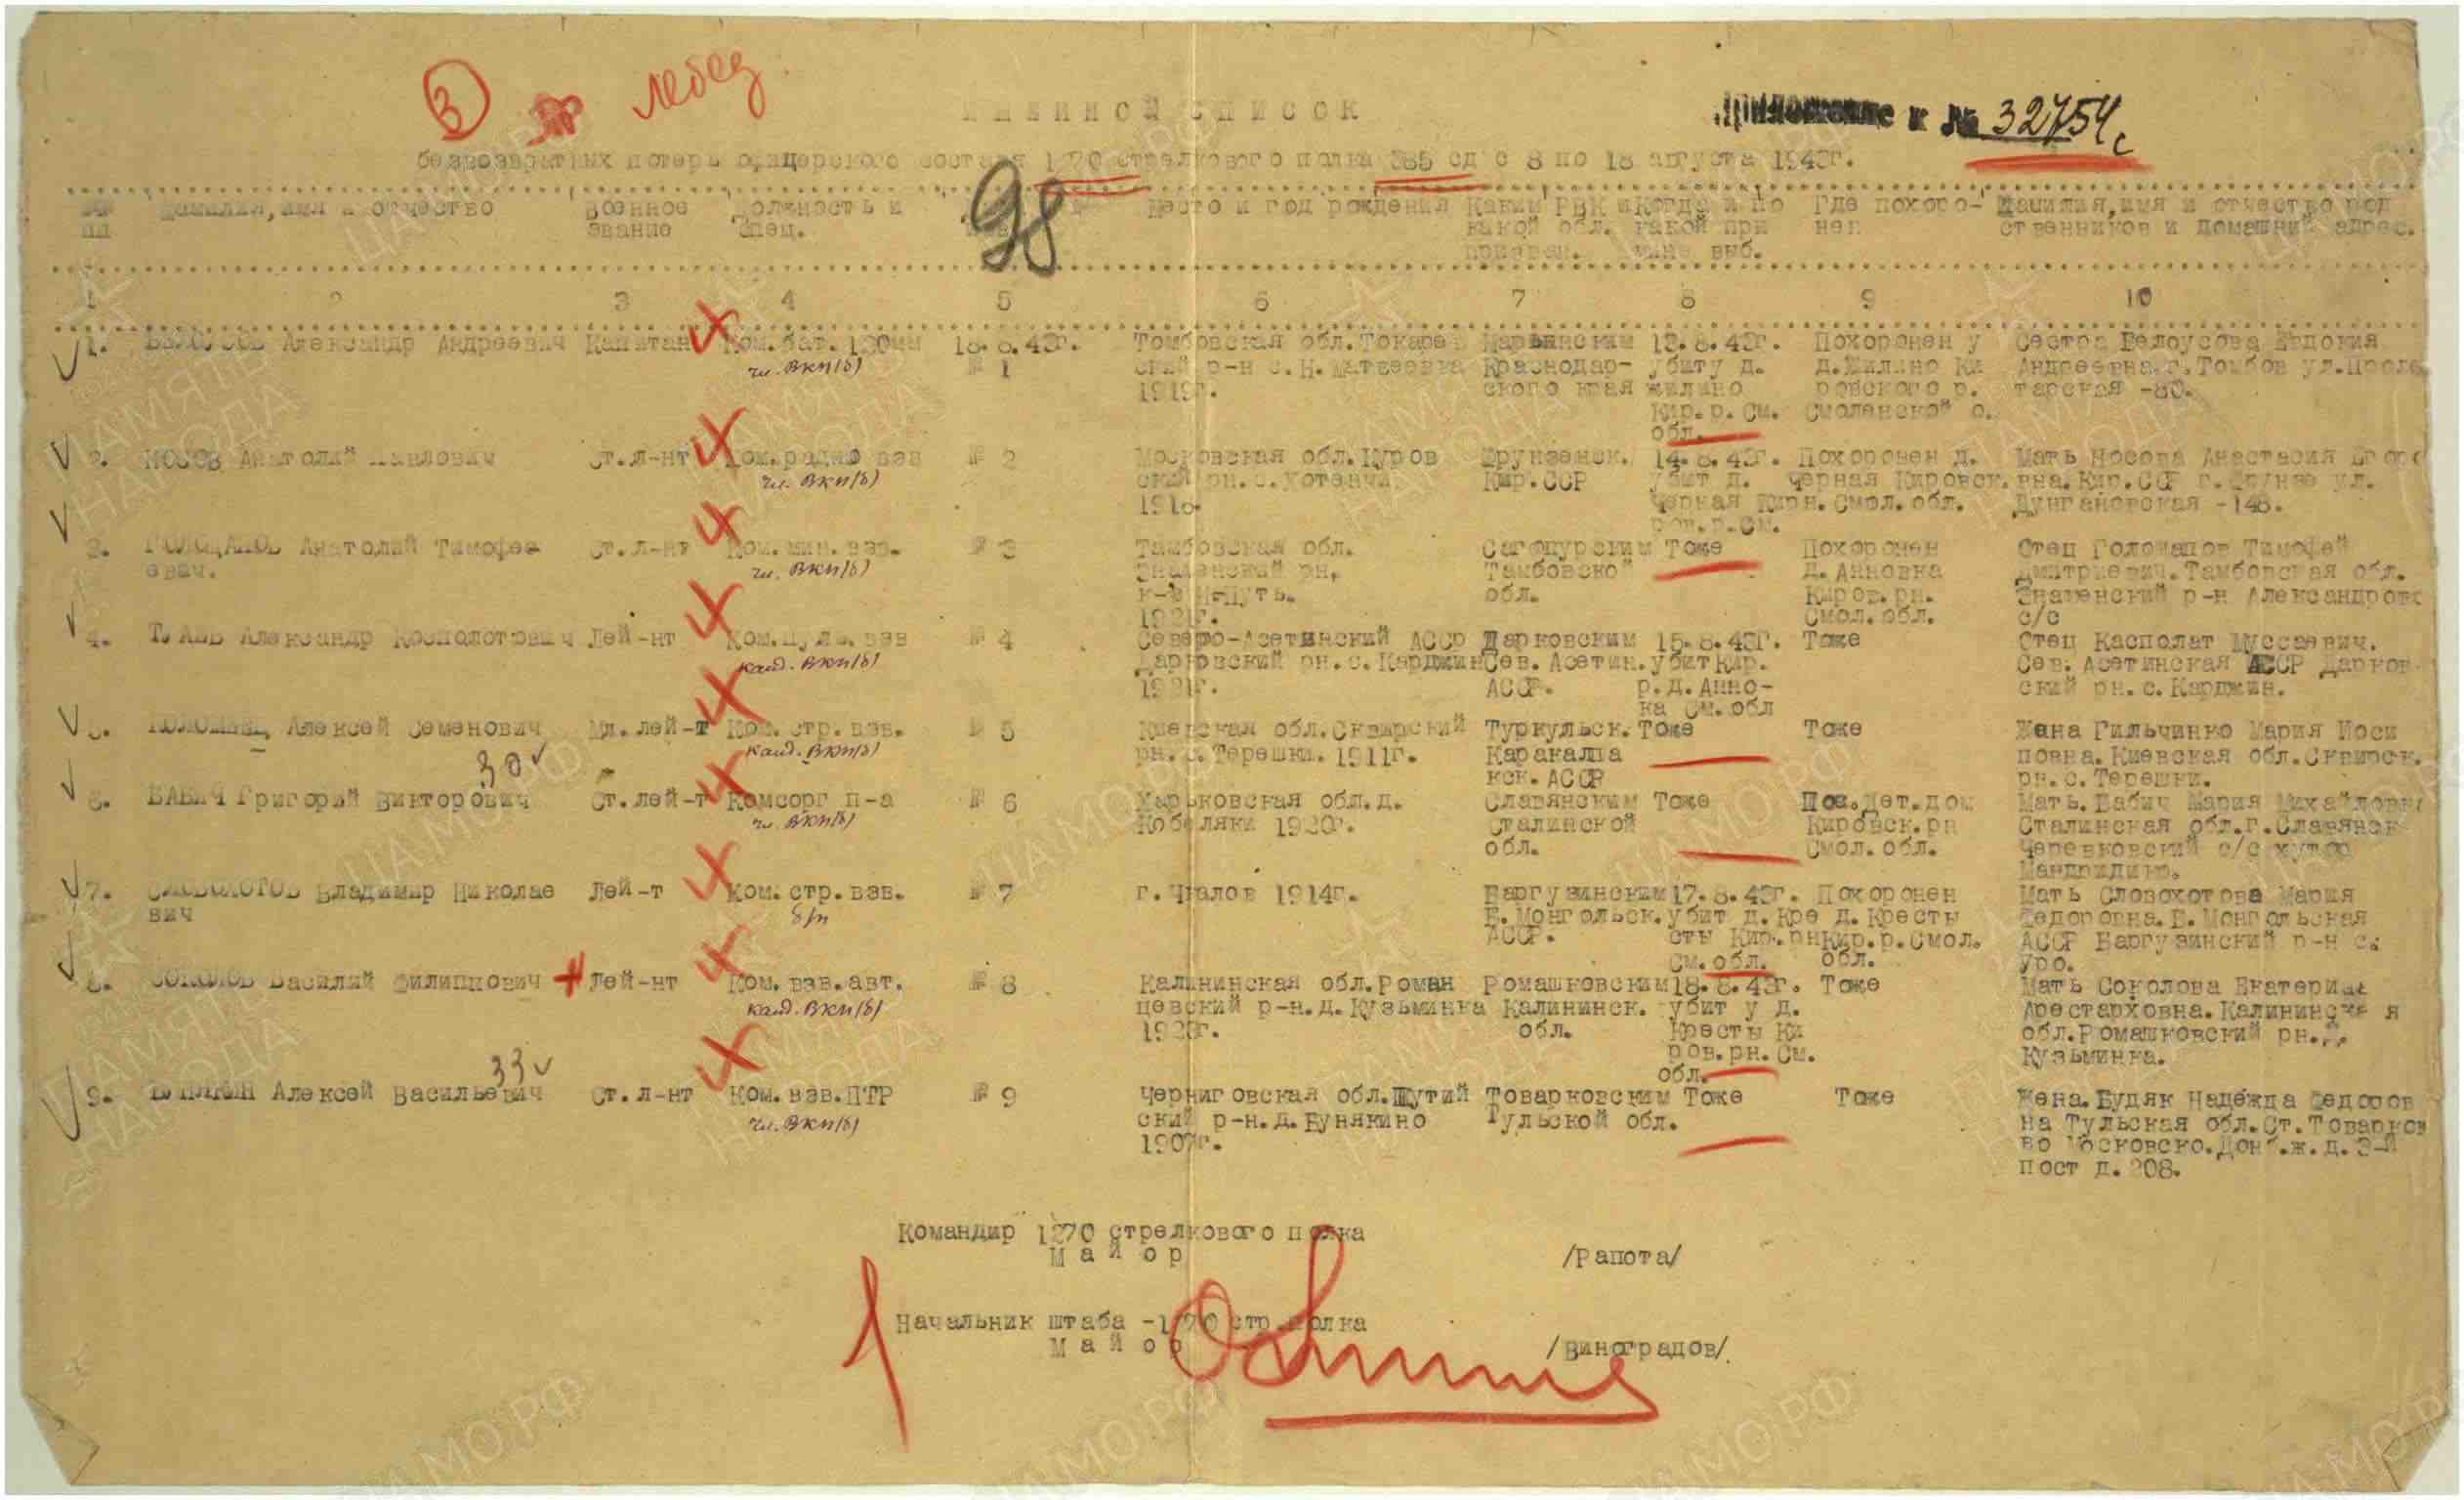 3 Лебед
ИМЕННОЙ СПИСОК
Приложение к № 32754с
безвозвратных потерь офицерского состава 1270 стрелкового полка 385 сд с 8 по 18 августа 1943г.
98
№№ Фамилия, имя и отчество Военное Должность и Место и год рождения Каким РВК и Когда и по Где похоро- Фамилия, имя и отчество род
пп звание спец. какой обл. какой при нен ственников и домашний адрес.
призван. чине выб.
1 2 3 4 5 6 7 8 9 10
1. БЕЛОУСОВ Александр Андреевич Капитан Ком. бат. 120мм 18.8.43г. Томбовская обл. Токарев Марьинским 13.8.43г. Похоронен у Сестра Белоусова Евдокия
чл. ВКП(б) № 1 ский р-н с. Н. Матвеевка Краснодар- убит у д. д. Жилино Ки Андреевна. г. Томбов ул. Проле
1919г. ского края Жилино ровского р. тарская -80.
Кир. р. См. Смоленской о.
обл.
2. НОСОВ Анатолий Павлович Ст. л-нт Ком. радио взв № 2 Московская обл. Куров Фрунзенск. 14.8.43г. Похоронен д. Мать Носова Анастасия Егоро
чл. ВКП(б) ский рн. с. Хотеичи Кир. ССР убит д. Черная Кировск. вна. Кир. ССР г. Фрунзе ул.
1916. Черная Кир н. Смол. обл. Дунгановская -148.
ров. р. См.
3. ГОЛОЩАПОВ Анатолий Тимофе Ст. л-нт Ком. мин. взв. № 3 Тамбовская обл. Сагопурским Тоже Похоронен Отец Голощапов Тимофей
евич. чл. ВКП(б) Знаменский рн. Тамбовской д. Анновка Дмитриевич. Тамбовская обл.
обл. Киров. рн. Знаменский р-н Александровс
1921г. Смол. обл. с/с
4. Александр Косполотович Лей-нт Ком. пуле. взв № 4 Северо-Асетинский АССР Дарковским 15.8.43г. Тоже Отец Касполат Муссаевич.
канд. ВКП(б) Дарковский рн. с. Карджин Сев. Асетин. убит Кир. Сев. Асетинская АССР Дарков
1921г. АССР. р. д. Анно- ский рн. с. Карджин.
ка См. обл
5. КОЛОМИЕЦ Алексей Семенович Мл. лей-т Ком. стр. взв. № 5 Киевская обл. Сквирский Туркульск. Тоже Тоже Жена Гильчинко Мария Иоси
канд. ВКП(б) рн. с. Терешки. 1911г. Каракалпа повна. Киевская обл. Сквирск.
30 кск. АССР рн. с. Терешки.
6. БАБИЧ Григорий Викторович Ст. лей-т Комсорг п-а № 6 Харьковская обл. д. Славянским Тоже Пох. Дет. дом Мать. Бабич Мария Михайловна
чл. ВКП(б) Кобеляки 1920г. Сталинской Кировск. рн Сталинская обл. г. Славянск
обл. Смол. обл. Черевковский с/с хутор
Мандридино.
7. СЛОВОХОТОВ Владимир Николае Лей-т Ком. стр. взв. № 7 г. Чкалов 1914г. Баргузинским 17.8.43г. Похоронен Мать Словохотова Мария
вич б/п Б. Монгольск. убит д. Кре д. Кресты Федоровна. Б. Монгольская
АССР. сты Кир. рн Кир. р. Смол. АССР Баргузинский р-н с.
См. обл. обл. Уро.
8. СОКОЛОВ Василий Филиппович Лей-нт Ком. взв. авт. № 8 Калининская обл. Роман Ромашковским 18.8.43г. Тоже Мать Соколова Екатерина
канд. ВКП(б) цевский р-н. д. Кузьминка Калининск. убит у д. Арестарховна. Калининская
обл. Кресты Ки обл. Ромашковский рн. д.
ров. рн. См. Кузьминка.
33 обл.
9. Алексей Васильевич Ст. л-нт Ком. взв. ПТР № 9 Черниговская обл. Шутий Товарковским Тоже Тоже Жена. Будяк Надежда Федоров
чл. ВКП(б) ский р-н. д. Бунякино Тульской обл. на Тульская обл. Ст. Товарков
1907г. во Московско. Донб. ж. д. 3-й
пост д. 208.
Командир 1270 стрелкового полка
Майор /Рапота/
Начальник штаба -1270 стр. полка
Майор /Виноградов/